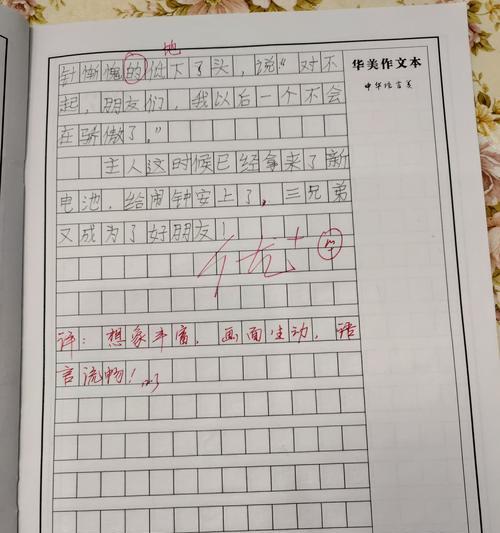 地
针惭愧的低下了头，说“对不
起，朋友们，我以后一个不会
在骄傲了。”
主人这时候已经拿来了新
电池，给闹钟安上了，三兄弟
又成为了好朋友！
优+
评：想象丰富，画面生动，语
言流畅！
华美作文本
中华语言美